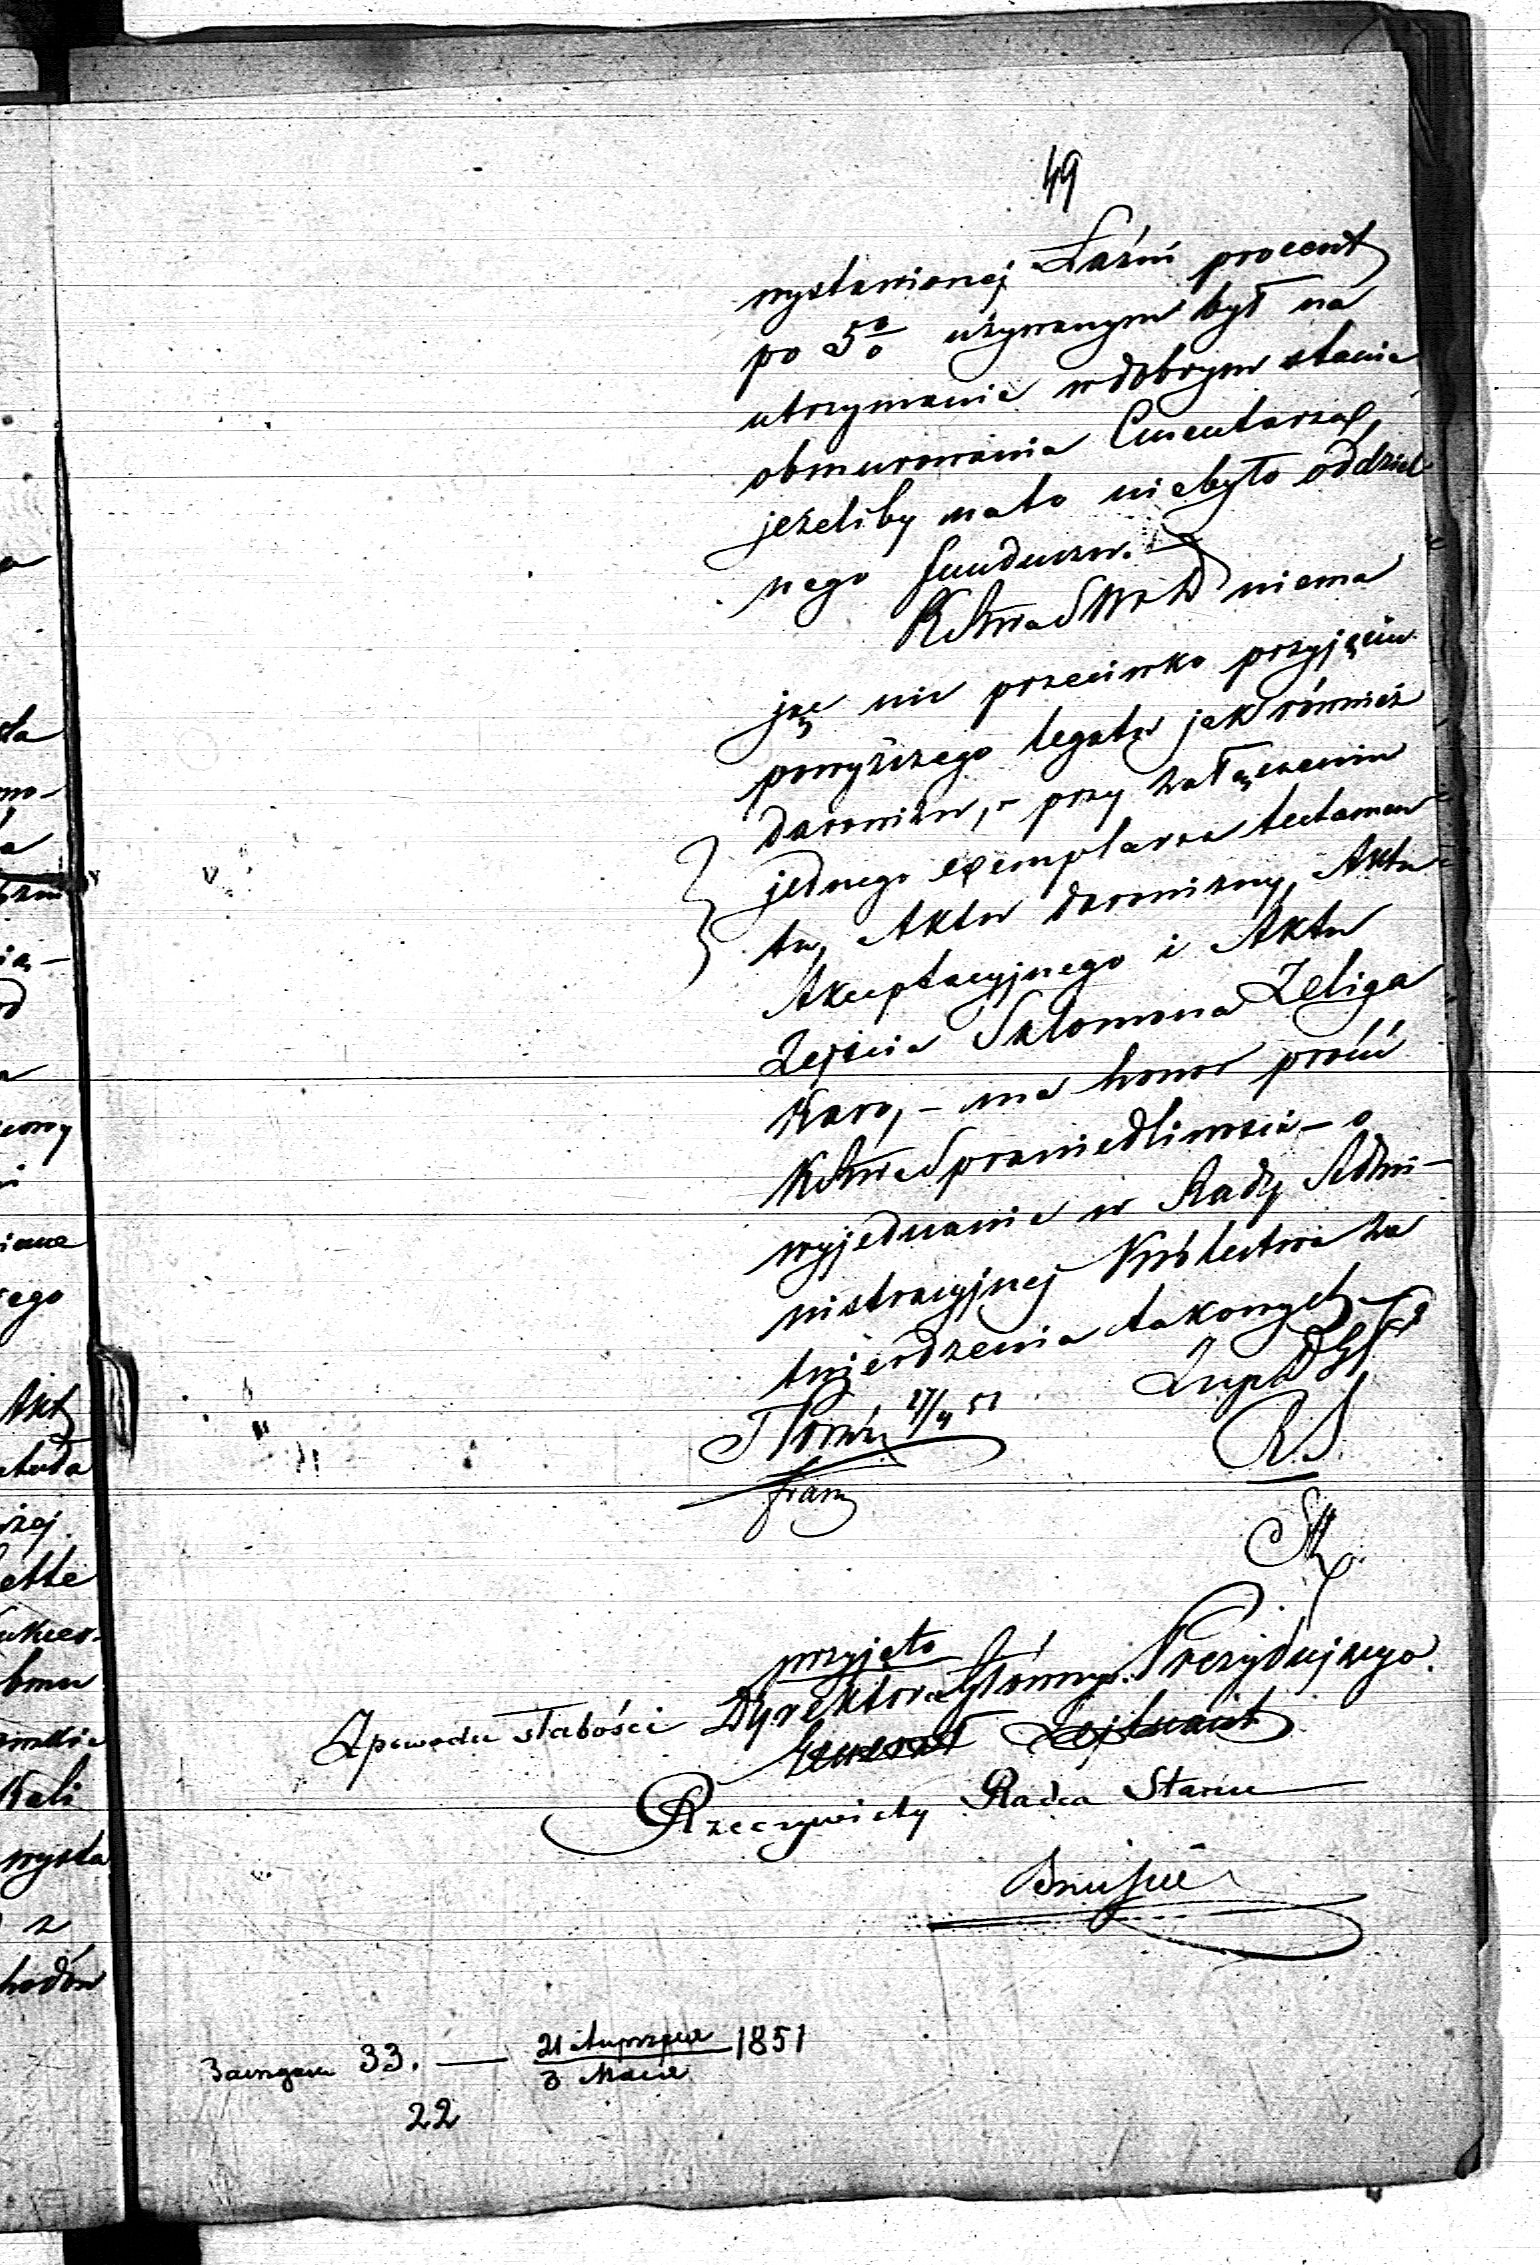 49
wystawionej Łaźni procent
po 5% używanym był na
utrzymanie w dobrym stanie
obmurowania Cmentarza,
jeżeliby nato niebyło oddziel
nego funduszu.
niema
jąc nic przeciwko przyjęciu
powyższego legatu jak również
darowizn, - przy załączeniu
jednego exemplarza testamen
tu, Aktu darowizny, Aktu
Akceptacyjnego i Aktu
Zejścia Salomona Zeliga
Karo, - ma honor prosić
Sprawiedliwości - o
wyjednanie w Radzie Admi-
nistracyjnej Królestwa za
twierdzenia takowych.
27/4 51
R.S.
przyjęto
Z powodu słabości Dyrektora Głównego Prezydującego
Generał Lejtnant
Rzeczywisty Radca Stanu
33. — 21 Апреля / 3 Мая 1851
22
a
ła
mo-
ią-
od
iane
ego
Akt
wysta
z
hodów